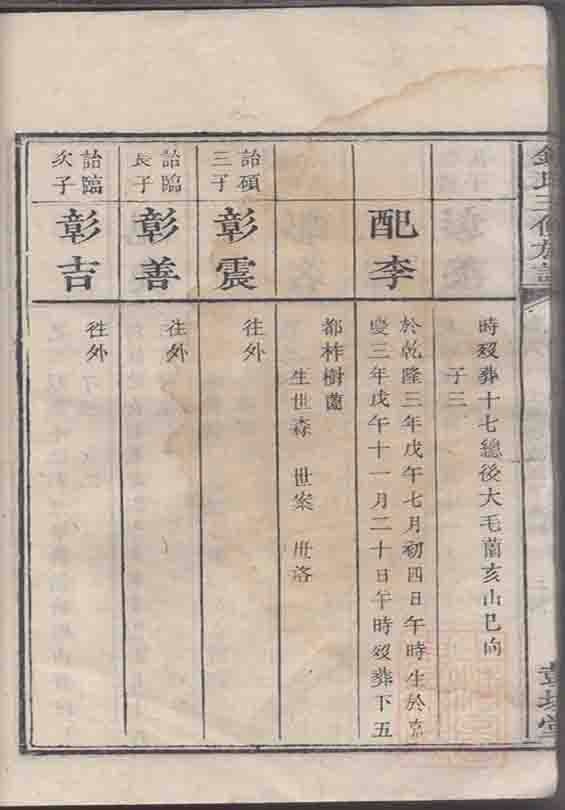 錢氏三修族譜
彭城堂
時歿葬十七總後大毛薗亥山巳向
子三
配李
於乾隆三年戊午七月初四日午時生於嘉
慶三年戊午十一月二十日午時歿葬下五
都柞樹薗
生世森 世案 世洛
詒碩
三子
彰震
徃外
詒臨
長子
彰善
徃外
詒臨
次子
彰吉
徃外